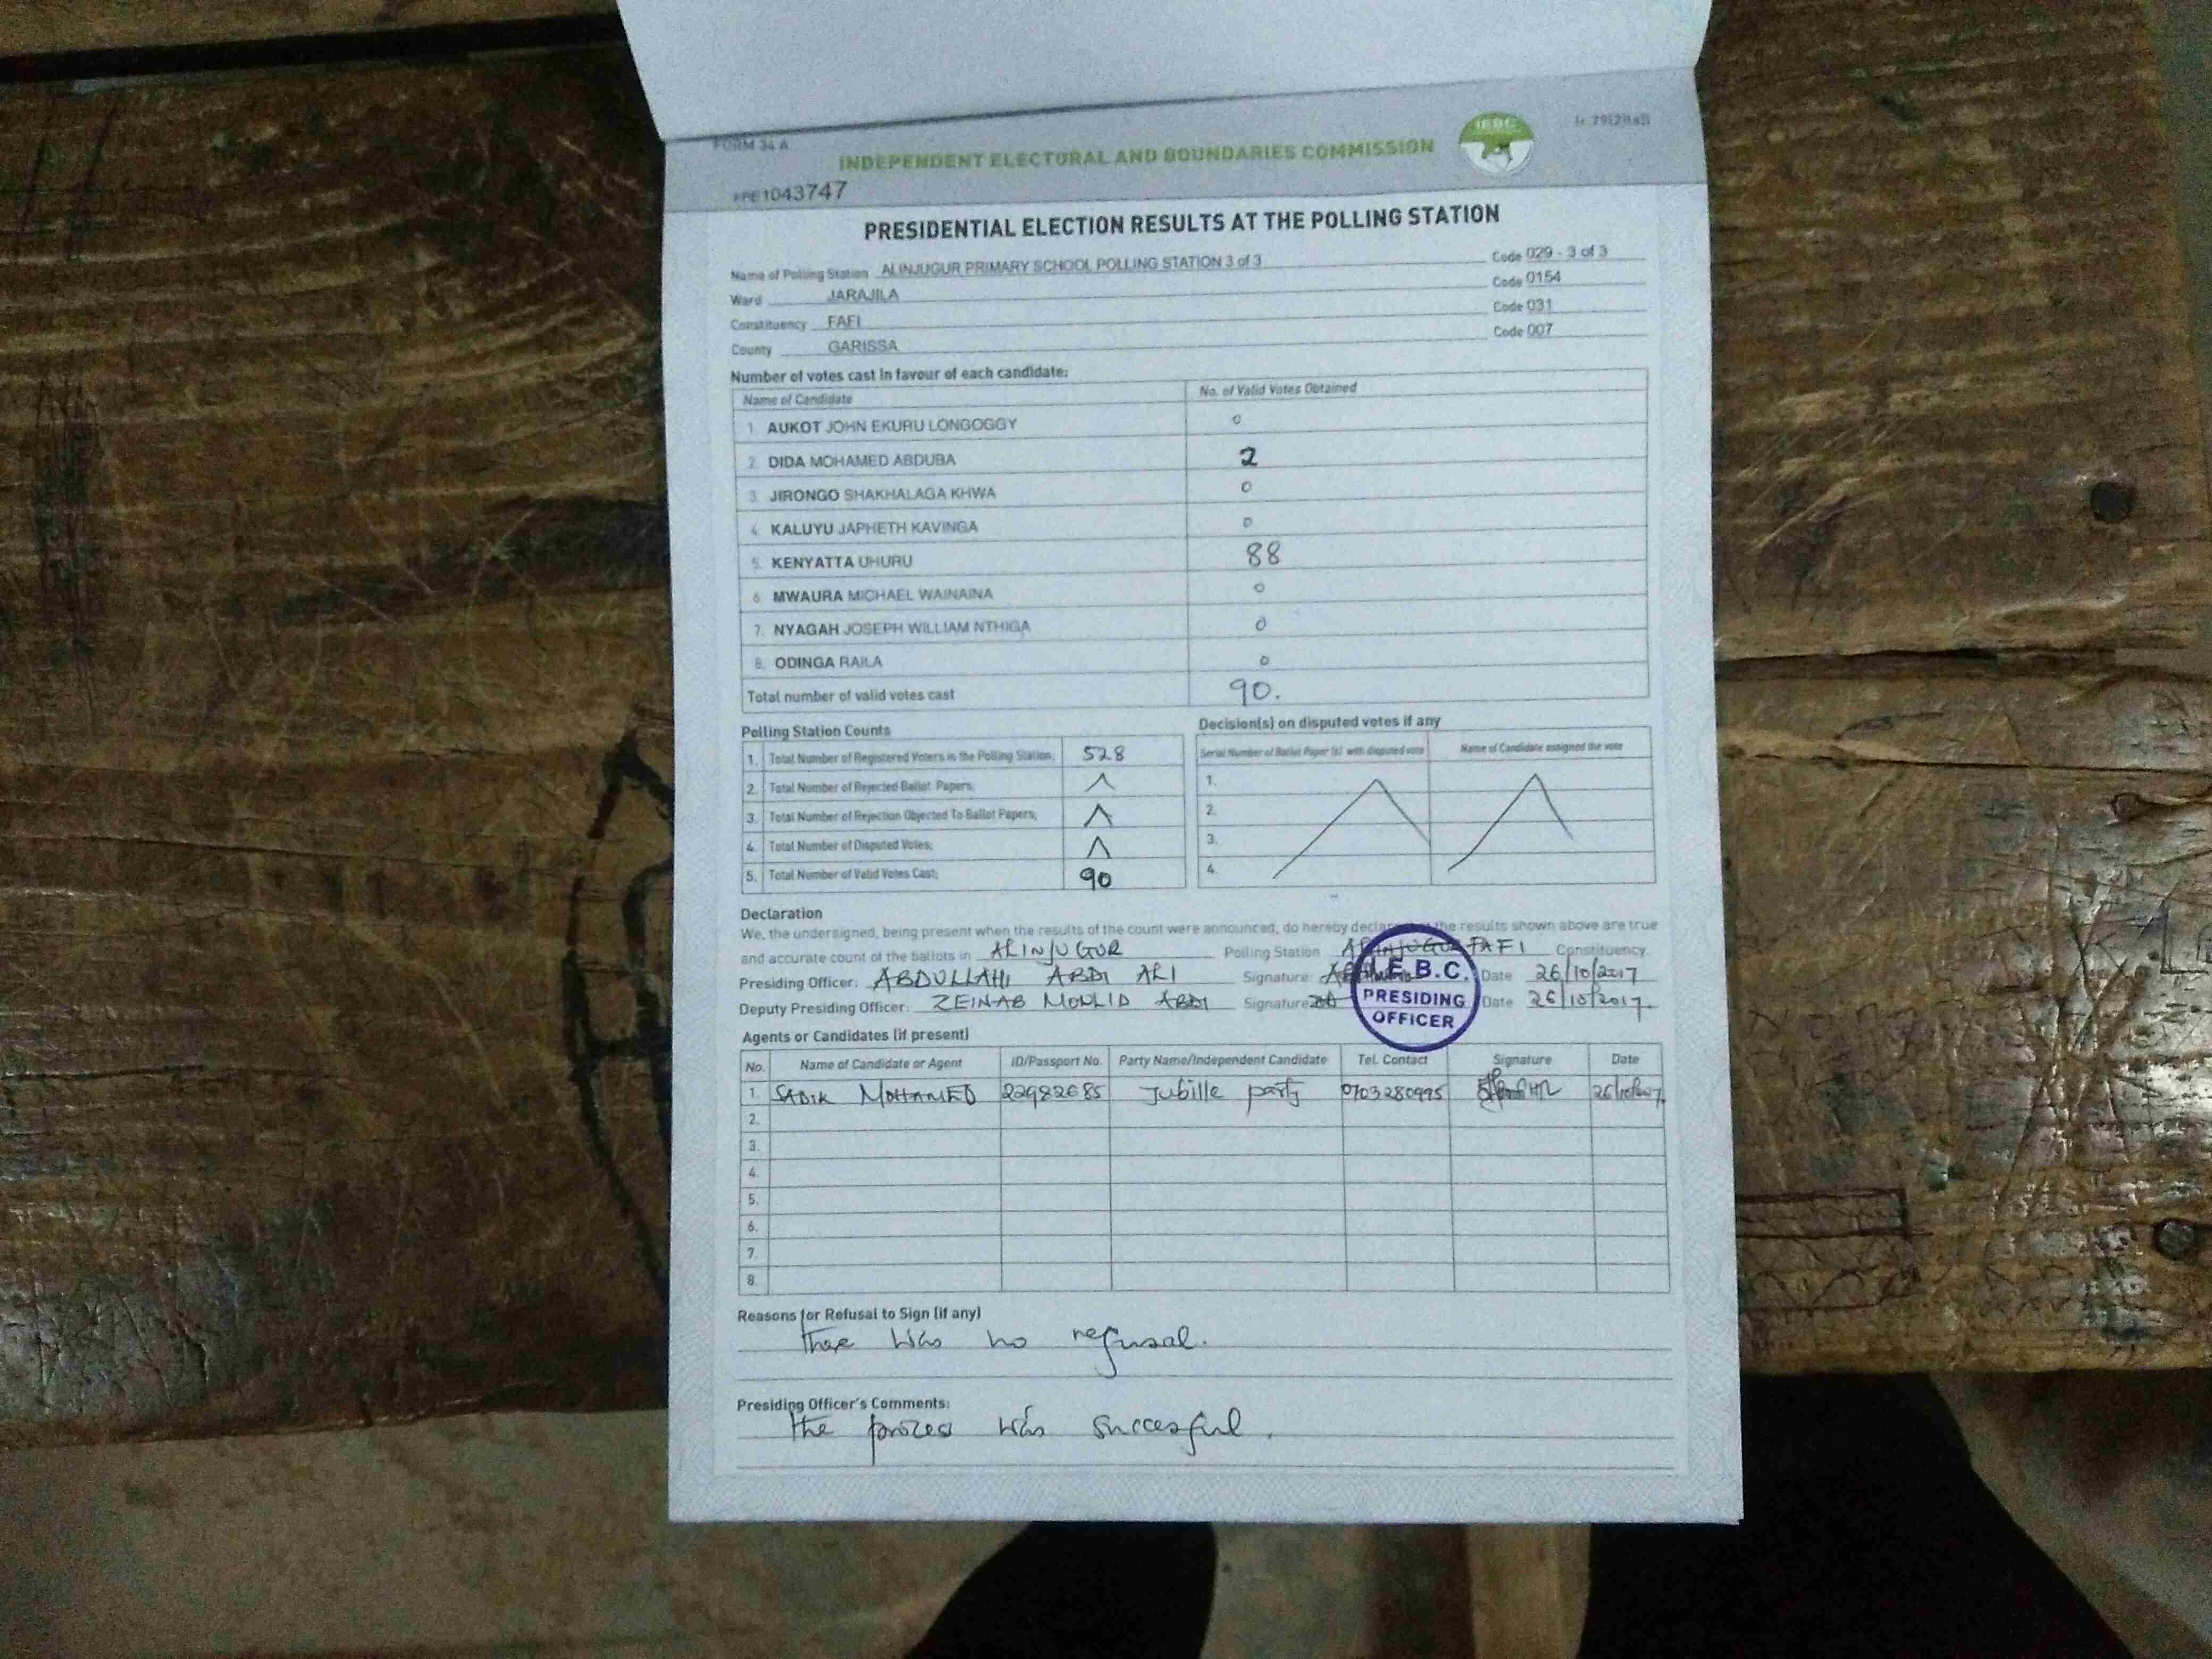 FORM 34 A
INDEPENDENT ELECTORAL AND BOUNDARIES COMMISSION
IEBC
1043747
PRESIDENTIAL ELECTION RESULTS AT THE POLLING STATION
Name of Polling Station ALINJUGUR PRIMARY SCHOOL POLLING STATION 3 of 3 Code 029 - 3 of 3
Ward JARAJILA Code 0154
Constituency FAFI Code 031
County GARISSA Code 007
Number of votes cast in favour of each candidate:
Name of Candidate No. of Valid Votes Obtained
1. AUKOT JOHN EKURU LONGOGGY 0
2. DIDA MOHAMED ABDUBA 2
3. JIRONGO SHAKHALAGA KHWA 0
4. KALUYU JAPHETH KAVINGA 0
5. KENYATTA UHURU 88
6. MWAURA MICHAEL WAINAINA 0
7. NYAGAH JOSEPH WILLIAM NTHIGA 0
8. ODINGA RAILA 0
Total number of valid votes cast 90.
Polling Station Counts
1. Total Number of Registered Voters in the Polling Station; 528
2. Total Number of Rejected Ballot Papers;
3. Total Number of Rejection Objected To Ballot Papers;
4. Total Number of Disputed Votes;
5. Total Number of Valid Votes Cast; 90
Decision(s) on disputed votes if any
Serial Number of Ballot Paper (s) with disputed vote Name of Candidate assigned the vote
1.
2.
3.
4.
Declaration
We, the undersigned, being present when the results of the count were announced, do hereby declare that the results shown above are true
and accurate count of the ballots in ALINJUGUR Polling Station ALINJUGUR FAFI Constituency
Presiding Officer: ABDULLAHI ABDI ALI Signature: Date 26/10/2017
Deputy Presiding Officer: ZEINAB MONLID ABDI Signature Date 26/10/2017.
I.E.B.C.
PRESIDING
OFFICER
Agents or Candidates (if present)
No. Name of Candidate or Agent ID/Passport No. Party Name/Independent Candidate Tel. Contact Signature Date
1. SADIK MOHAMED 22982685 Jubille party 0703280995 26/10/2017
2.
3.
4.
5.
6.
7.
8.
Reasons for Refusal to Sign (if any)
There was no refusal.
Presiding Officer's Comments:
the process was succesful.